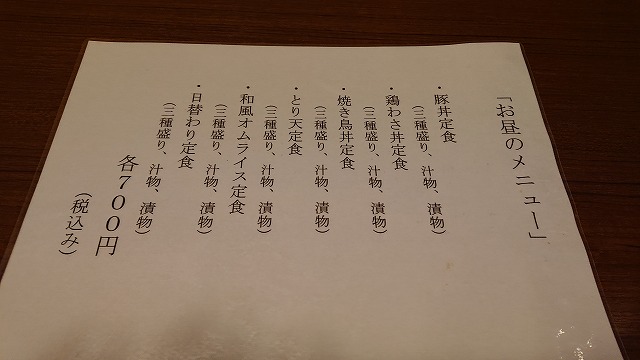 「お昼のメニュー」
・豚丼定食
（三種盛り、汁物、漬物）
・鶏わさ丼定食
（三種盛り、汁物、漬物）
・焼き鳥丼定食
（三種盛り、汁物、漬物）
・とり天定食
（三種盛り、汁物、漬物）
・和風オムライス定食
（三種盛り、汁物、漬物）
・日替わり定食
（三種盛り、汁物、漬物）
各７００円
（税込み）